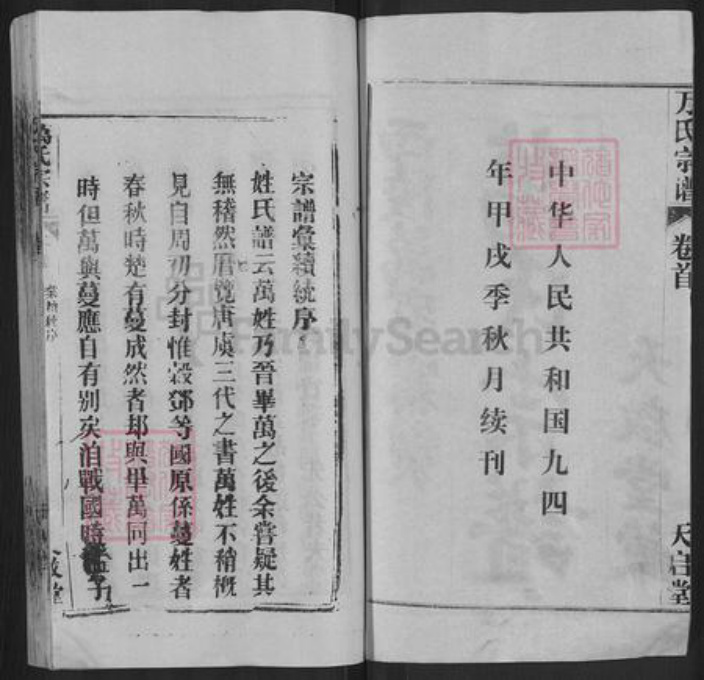 万氏宗谱
卷首
天启堂
中华人民共和国九四
年甲戌季秋月续刊
宗譜彙續統序
姓氏譜云萬姓乃晉畢萬之後余嘗疑其
無稽然曆覽唐虞三代之書萬姓不稍概
見自周初分封惟穀鄧等國原係蔓姓者
春秋時楚有蔓成然者却與畢萬同出一
時但萬與蔓應自有别矣洎戰國時孟子
萬氏宗譜
堂
FamilySearch